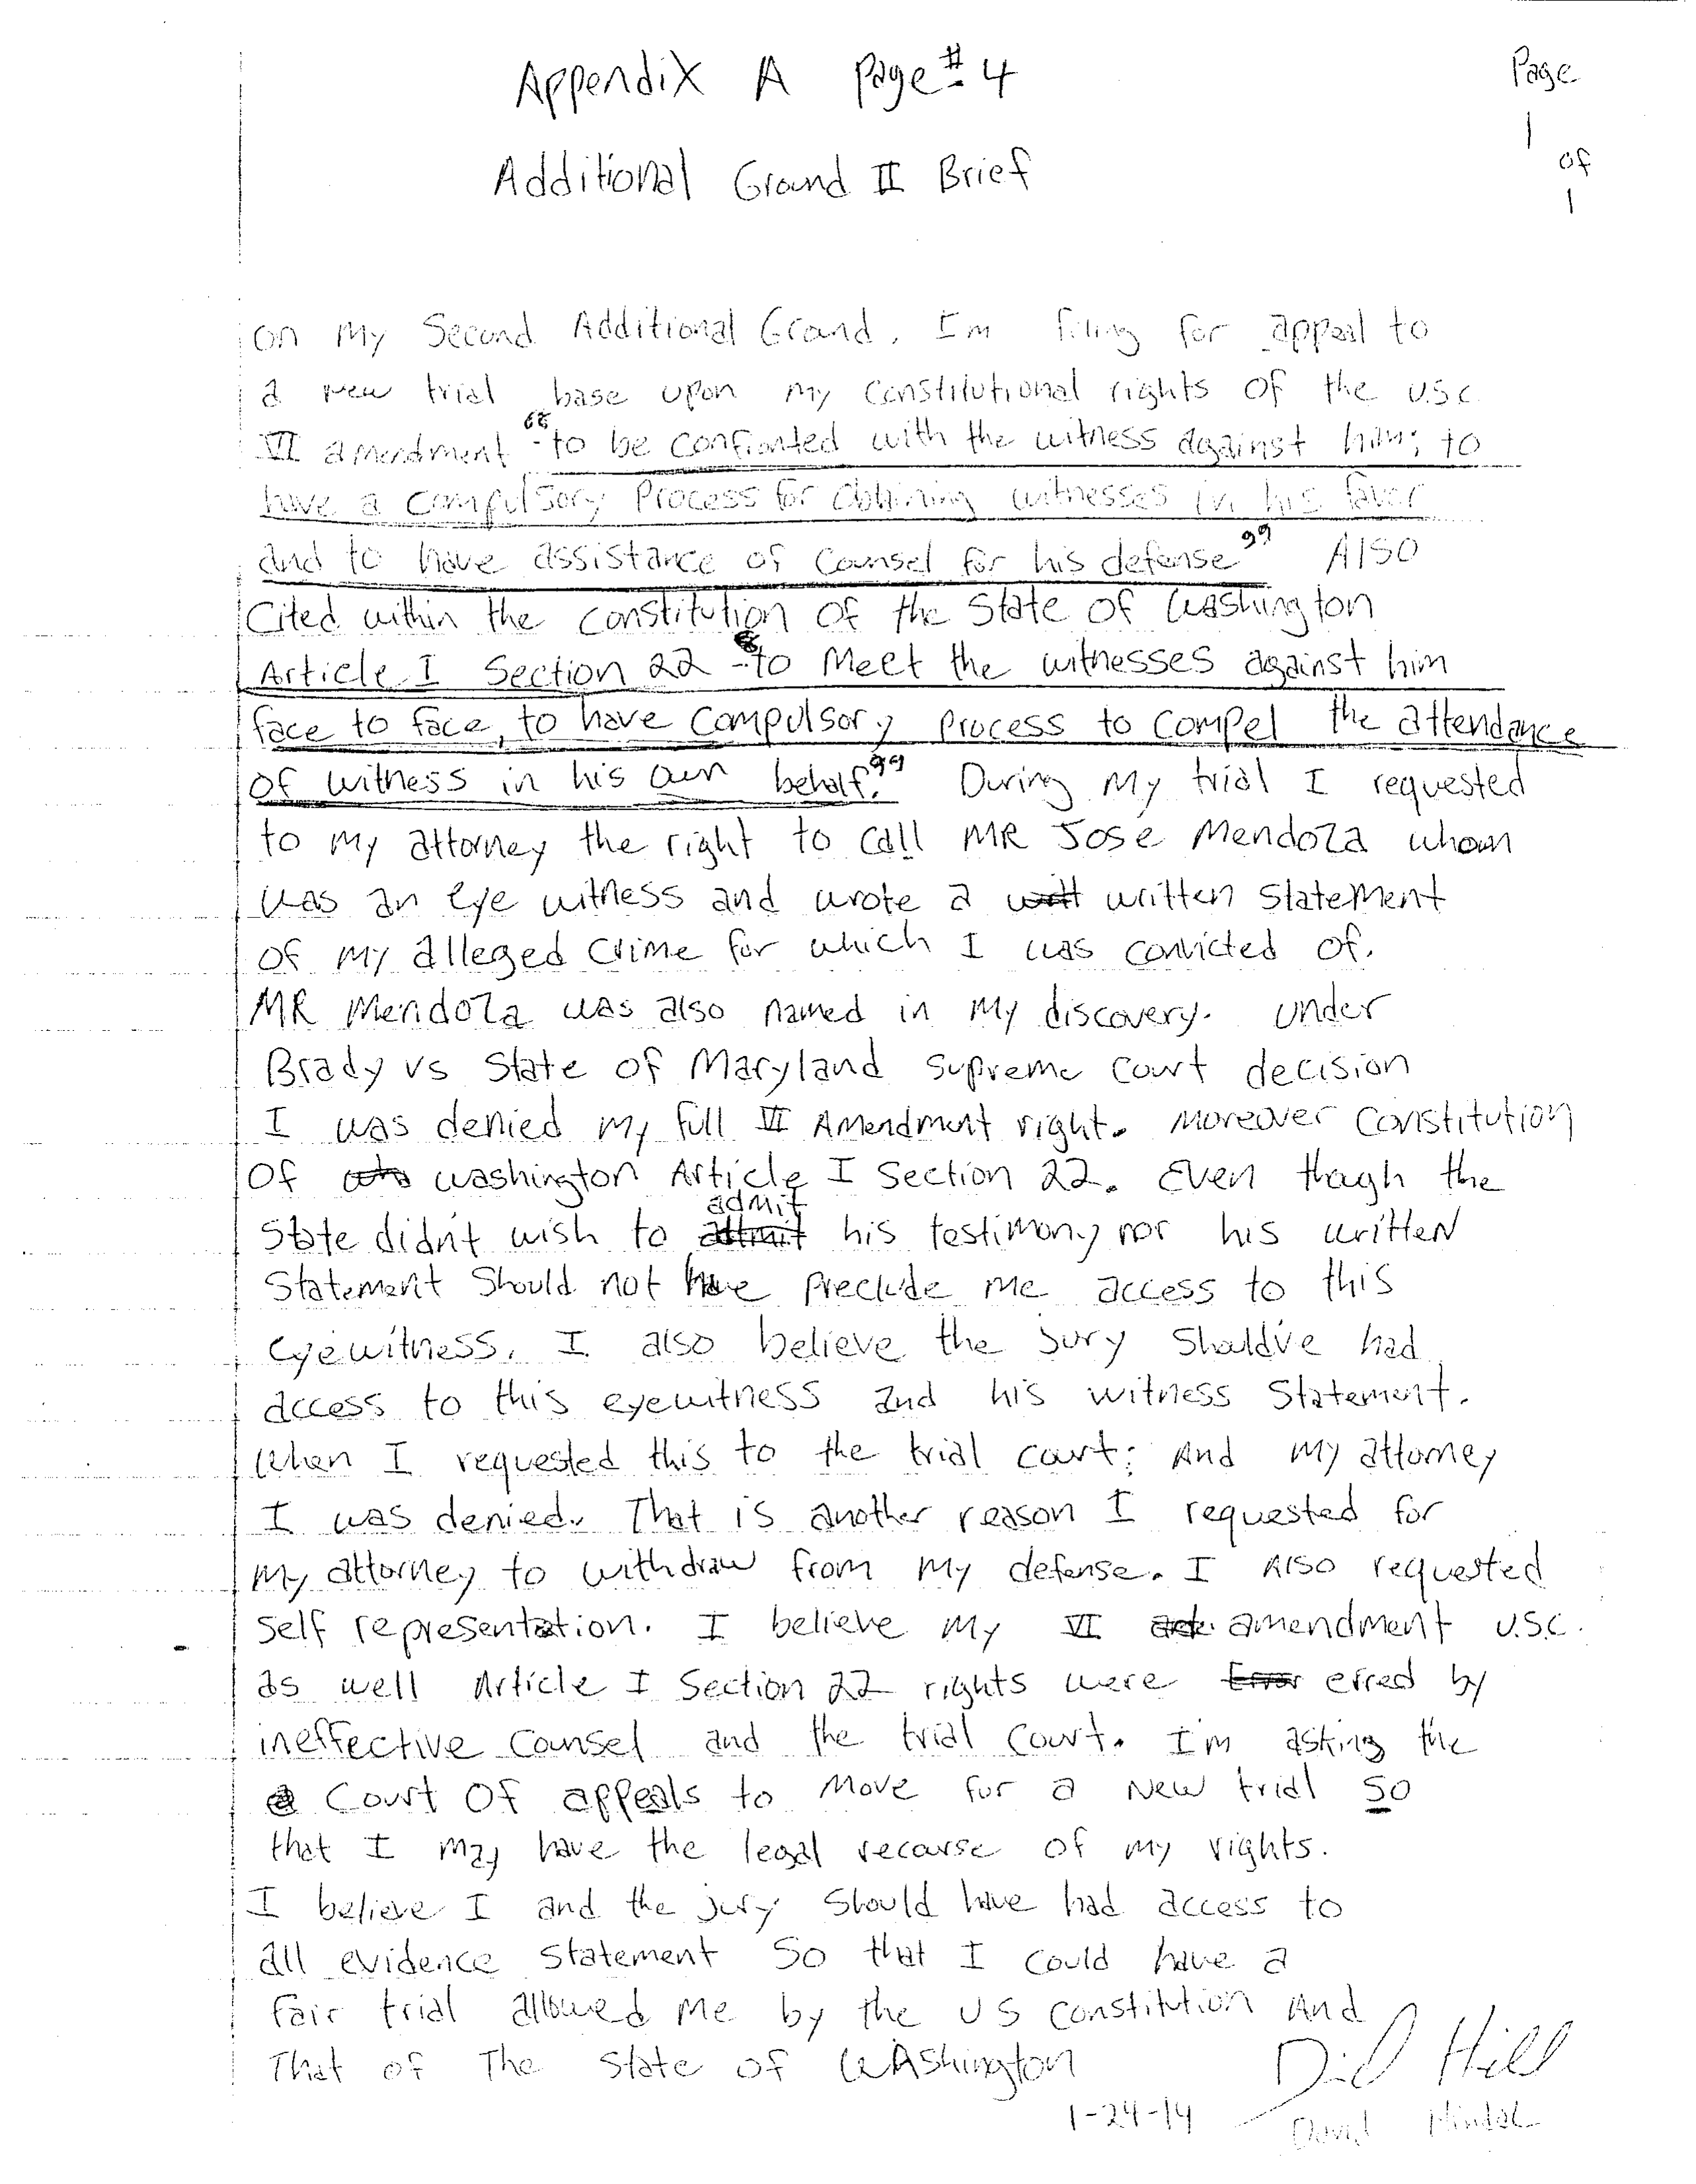 Appendix A Page # 4
Page
1
of
1
Additional Ground II Brief
on my Second Additional Ground, I'm filing for appeal to
a new trial base upon my constitutional rights of the U.S.C
VI amendment "to be confronted with the witness against him; to
have a compulsory Process for obtaining witnesses in his favor
and to have assistance of counsel for his defense" Also
Cited within the constitution of the State of Washington
Article I Section 22 "to Meet the witnesses against him
face to face, to have compulsory process to compel the attendance
of witness in his own behalf." During my trial I requested
to my attorney the right to call MR Jose Mendoza whom
was an eye witness and wrote a written statement
of my alleged crime for which I was convicted of.
MR Mendoza was also named in my discovery. Under
Brady vs State of Maryland supreme court decision
I was denied my full VI Amendment right. Moreover Constitution
of Washington Article I Section 22. Even though the
State didn't wish to admit his testimony nor his written
Statement Should not have preclude me access to this
eyewitness. I also believe the jury Should've had
access to this eyewitness and his witness Statement.
When I requested this to the trial court; And my attorney
I was denied. That is another reason I requested for
my attorney to withdraw from my defense. I Also requested
self representation. I believe my VI amendment U.S.C.
as well Article I Section 22 rights were erred by
ineffective counsel and the trial court. I'm asking the
Court Of appeals to move for a New trial So
that I may have the legal recourse of my rights.
I believe I and the jury should have had access to
all evidence statement so that I could have a
fair trial allowed me by the US Constitution And
That of The State of Washington
1-24-14 David